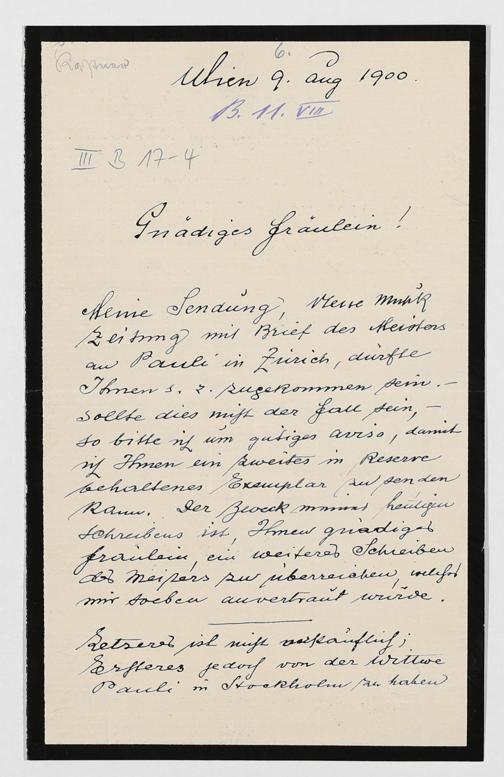 6.
Wien 9. Aug 1900.
B. 11. VIII
III B 17-4
Gnädiges Fräulein!
Meine Sendung, Neue Musik
Zeitung mit Brief des Meisters
an Pauli in Zürich, dürfte
Ihnen s. z. zugekommen sein. –
Sollte dies nicht der Fall sein, –
so bitte ich um gütiges aviso, damit
ich Ihnen ein zweites in Reserve
behaltenes Exemplar zu senden
kann. Der Zweck meines heutigen
Schreibens ist, Ihnen gnädiges
Fräulein, ein weiteres Schreiben
des Meisters zu überreichen, welches
mir soeben anvertraut wurde.
Letzeres ist nicht verkäuflich;
Ersteres jedoch von der Wittwe
Pauli in Stockholm zu haben